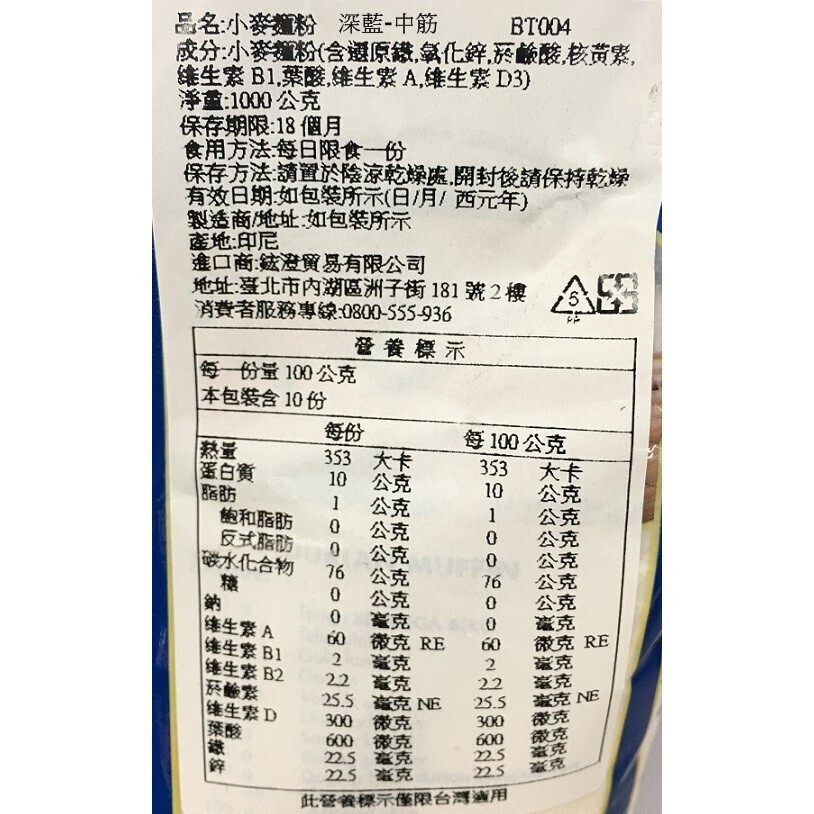 品名:小麥麵粉 深藍-中筋 BT004
成分:小麥麵粉(含還原鐵,氧化鋅,菸鹼酸,核黃素,
維生素 B1,葉酸,維生素 A,維生素 D3)
淨重:1000 公克
保存期限:18 個月
食用方法:每日限食一份
保存方法:請置於陰涼乾燥處,開封後請保持乾燥
有效日期:如包裝所示(日/月/ 西元年)
製造商/地址:如包裝所示
產地:印尼
進口商:鉉澄貿易有限公司
地址:臺北市內湖區洲子街 181 號 2 樓
消費者服務專線:0800-555-936
5
PP
營養標示
每一份量 100 公克
本包裝含 10 份
每份 每 100 公克
熱量 353 大卡 353 大卡
蛋白質 10 公克 10 公克
脂肪 1 公克 1 公克
飽和脂肪 0 公克 0 公克
反式脂肪 0 公克 0 公克
碳水化合物 76 公克 76 公克
糖 0 公克 0 公克
鈉 0 毫克 0 毫克
維生素 A 60 微克 RE 60 微克 RE
維生素 B1 2 毫克 2 毫克
維生素 B2 2.2 毫克 2.2 毫克
菸鹼素 25.5 毫克 NE 25.5 毫克 NE
維生素 D 300 微克 300 微克
葉酸 600 微克 600 微克
鐵 22.5 毫克 22.5 毫克
鋅 22.5 毫克 22.5 毫克
此營養標示僅限台灣適用